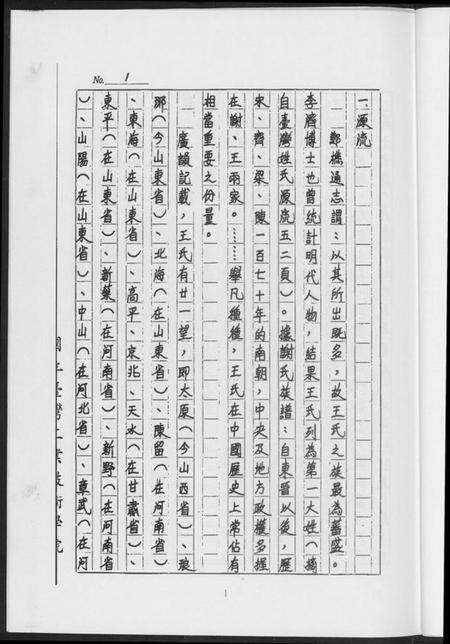 No. 1
一、源流
鄭樵通志謂：以其所出既多，故王氏之族最為蕃盛。
李濟博士也曾統計明代人物，結果王氏列為第一大姓（摘
自臺灣姓氏源流五二頁）。據謝氏族譜：自東晉以後，歷
宋、齊、梁、陳一百七十年的南朝，中央及地方政權多握
在謝、王兩家。……舉凡種種，王氏在中國歷史上常佔有
相當重要之份量。
廣韻記載，王氏有廿一望，即太原（今山西省）、瑯
琊（今山東省）、北海（在山東省）、陳留（在河南省）
、東海（在山東省）、高平、京兆、天水（在甘肅省）、
東平（在山東省）、新蔡（在河南省）、新野（在河南省
）、山陽（在山東省）、中山（在河北省）、章武（在河
國立臺灣工業技術學院
1